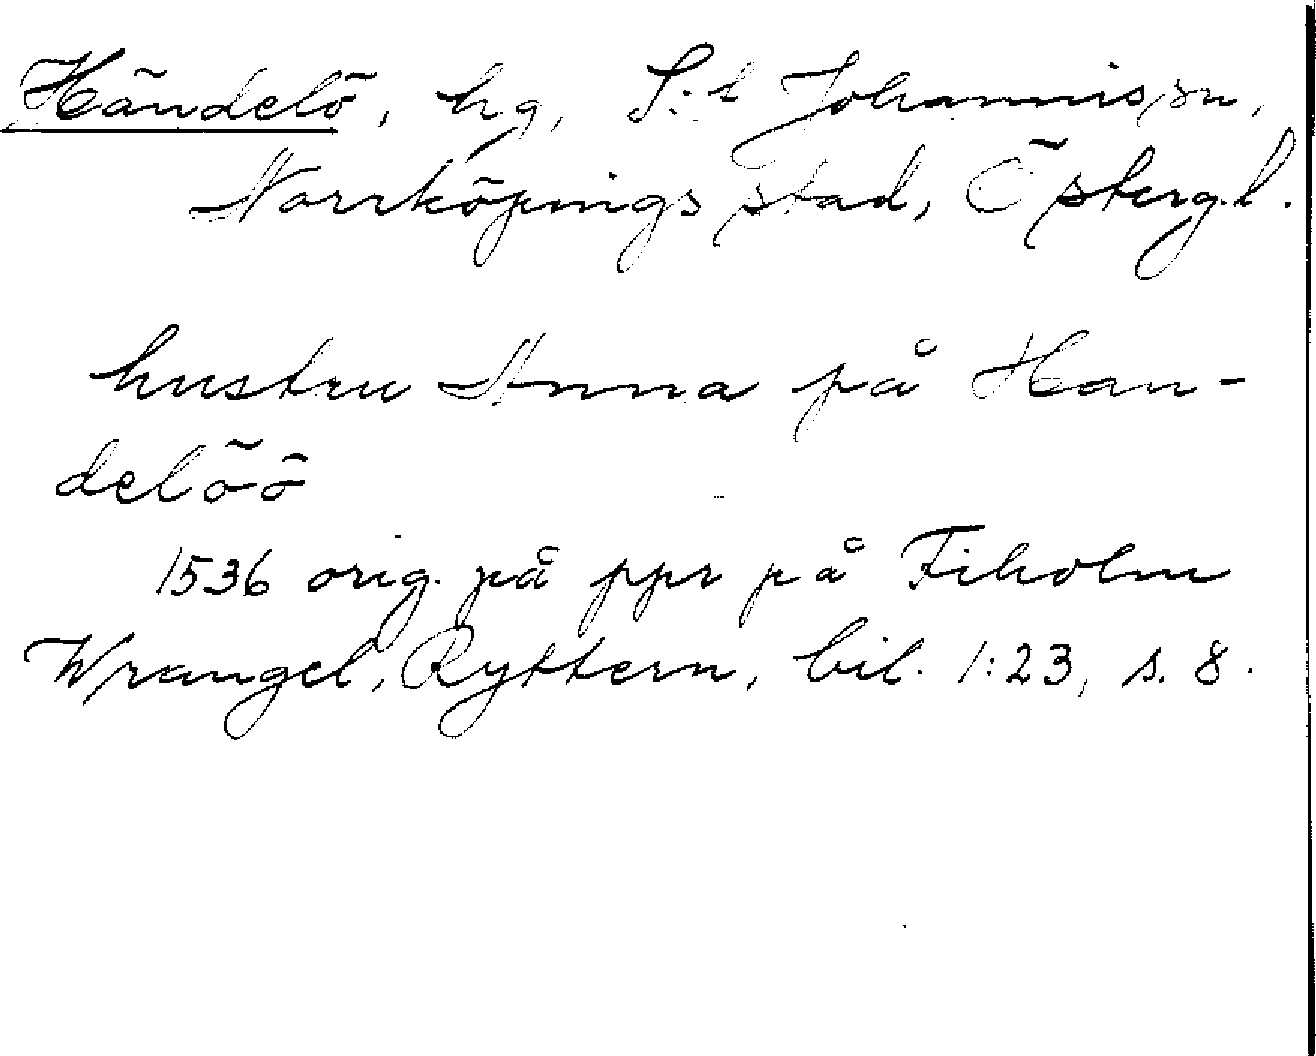 Händelö, hg, S:t Johannis sn,
Norrköpings stad, Östergl.
hustru Anna på Han-
delöö
1536 orig. på ppr på Fiholm
Wrangel, Ryttern, bil. 1:23, s. 8.